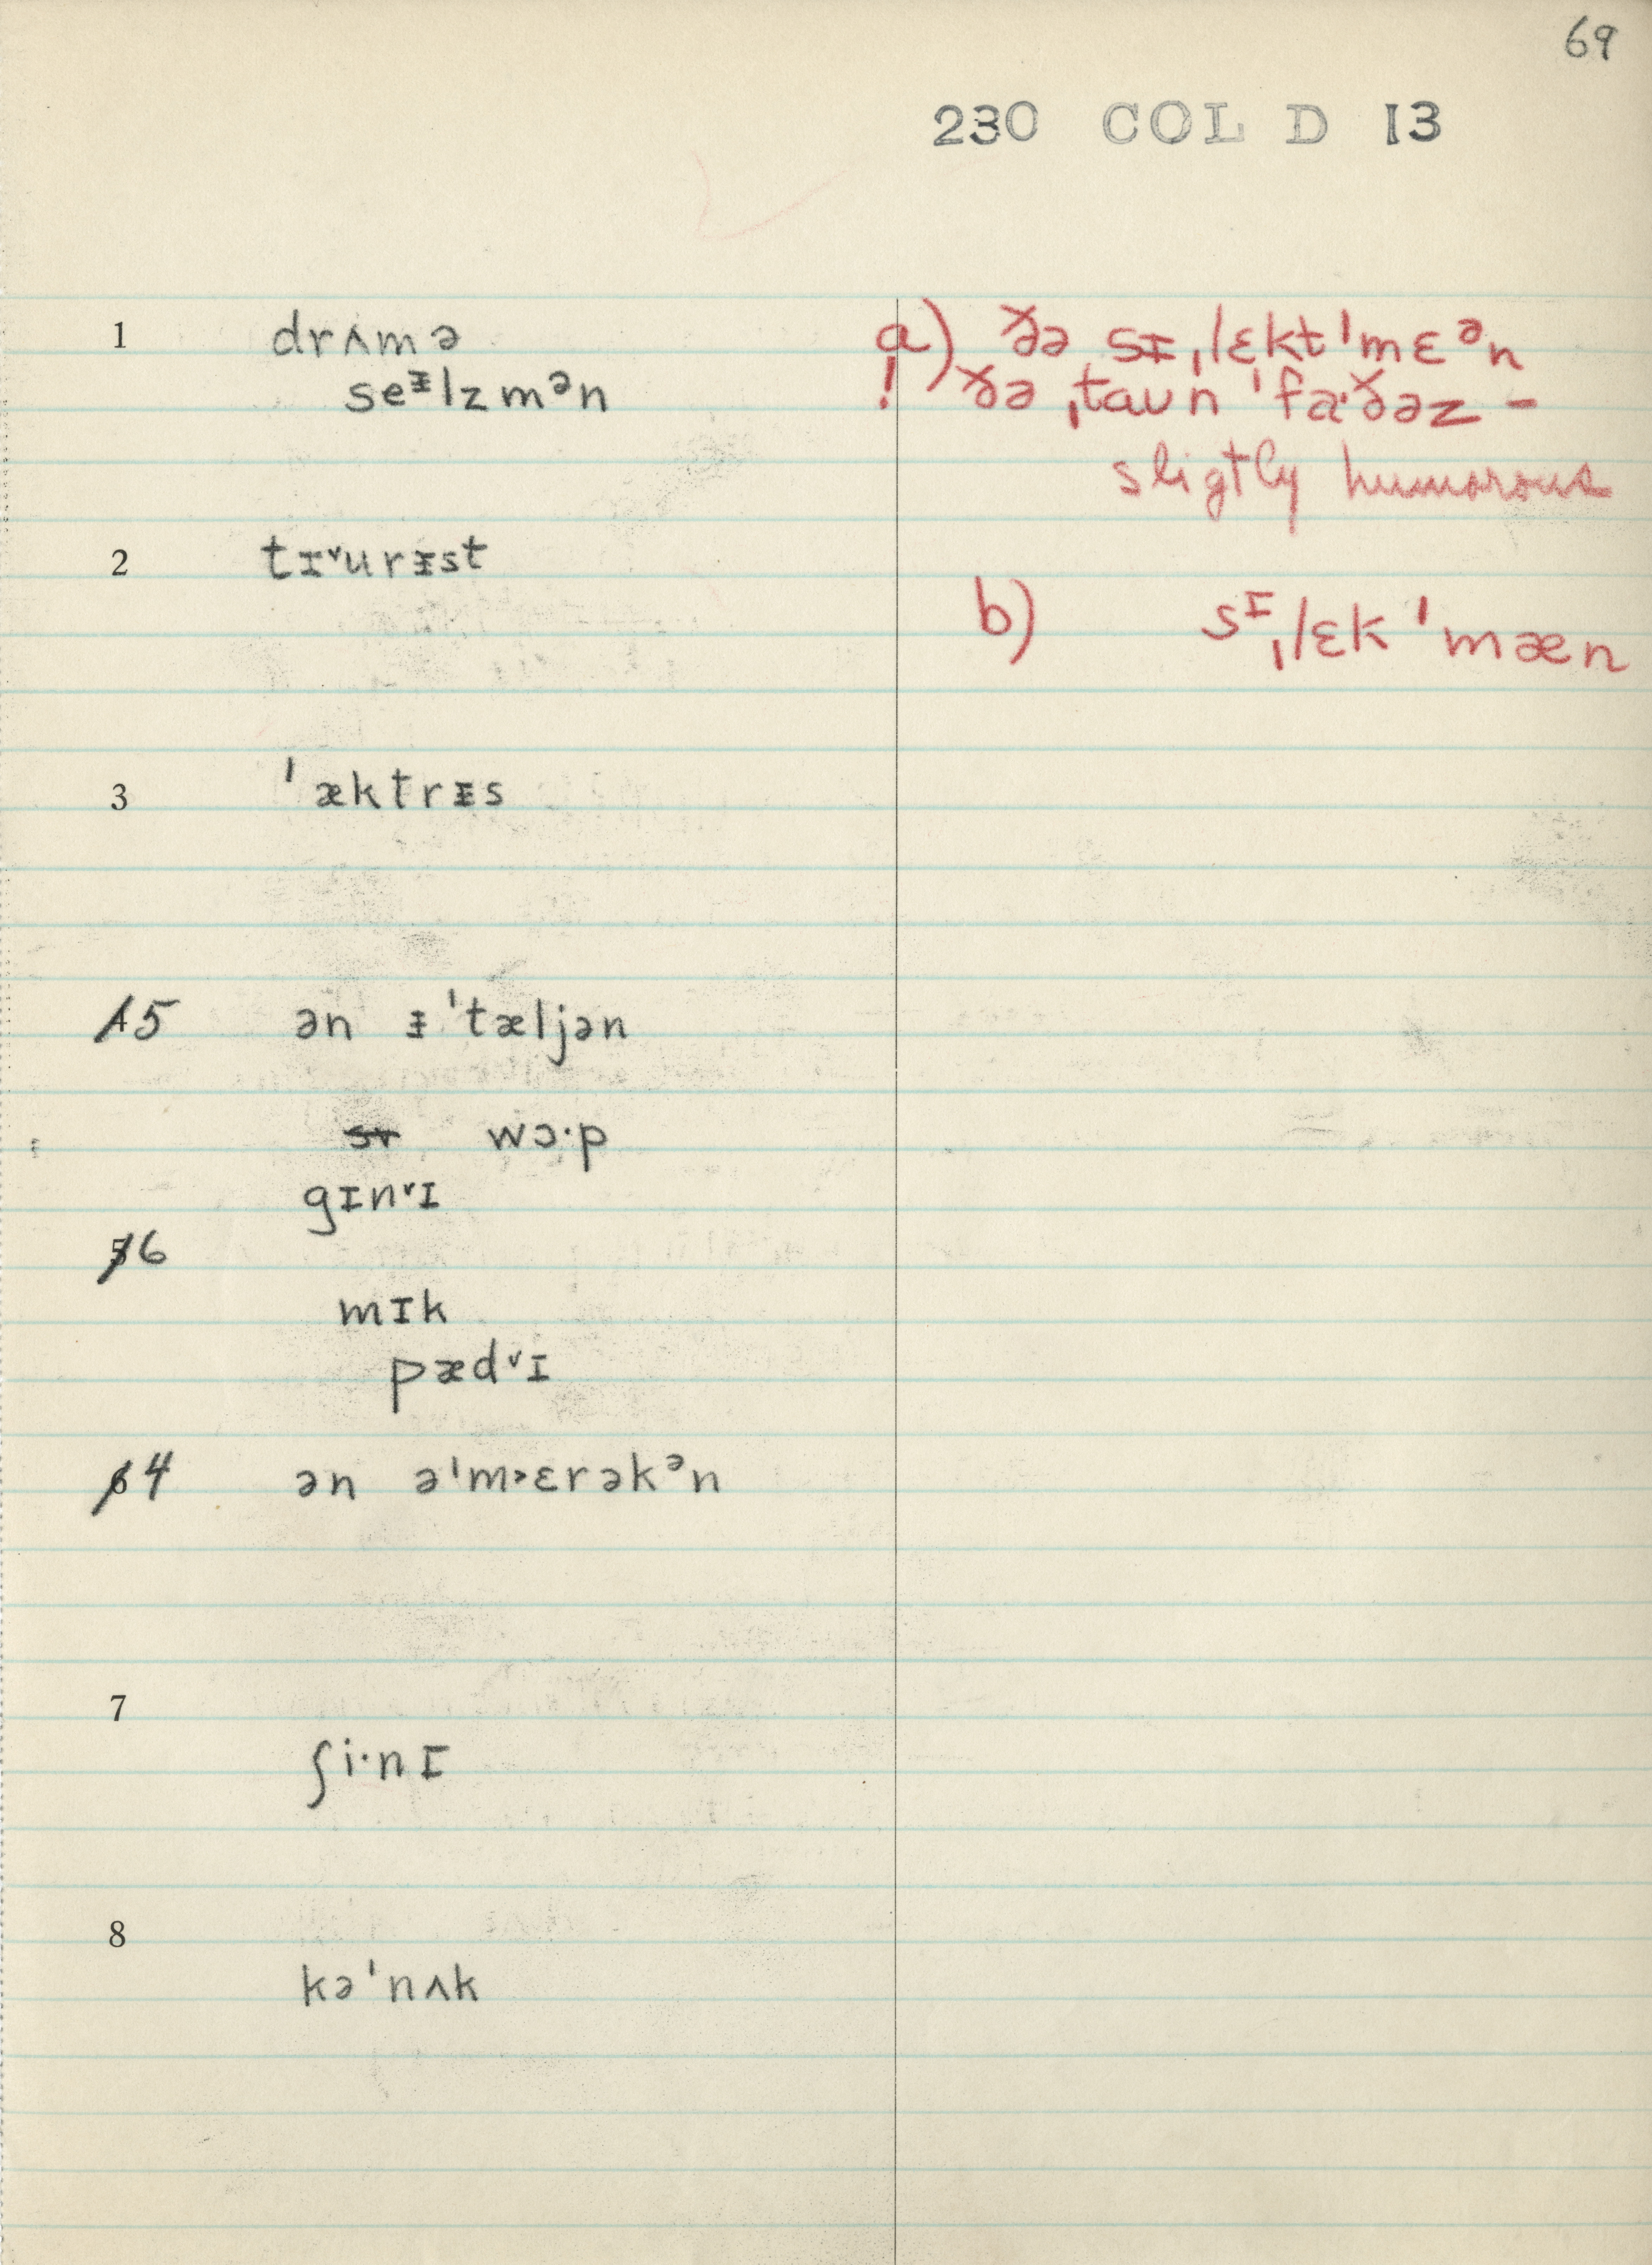 69
230 COL D 13
1 drʌmə
seᵻlzmən
2 tɪ˅urᵻst
3 ˈæktrᵻs
45 ən ᵻˈtæljən
wɔ·p
gɪn˅ɪ
56
mɪk
pæd˅ɪ
64 ən əˈm˃ɛrəkᵊn
7
ʃi·nɪ
8
kəˈnʌk
a) ðə sᵻˌlɛktˈmɛᵊn
! ðə ˌtaʊn ˈfa·ðəz –
sligtly humorous
b) sᶦˌlɛkˈmæn